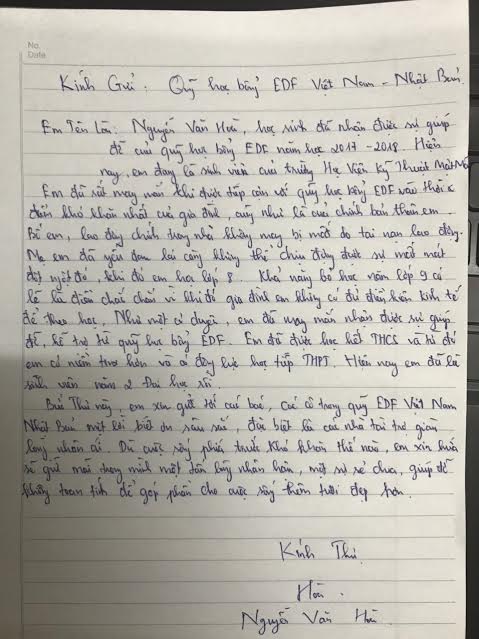 No.
Date
Kính Gửi : Quỹ học bổng EDF Việt Nam - Nhật Bản.
Em Tên Là : Nguyễn Văn Hoà, học sinh đã nhận được sự giúp
đỡ của quỹ học bổng EDF năm học 2017 - 2018. Hiện
nay, em đang là sinh viên của trường Học Viện Kỹ Thuật Mật Mã
Em đã rất may mắn khi được tiếp cận với quỹ học bổng EDF vào thời
điểm khó khăn nhất của gia đình, cũng như là của chính bản thân em.
Bố em, lao động chính trong nhà không may bị mất do tai nạn lao động.
Mẹ em đã yếu đau lại càng không thể chịu đựng được sự mất mát
đột ngột đó, khi đó em học lớp 8. Khả năng bỏ học năm lớp 9 có
lẽ là điều chắc chắn vì khi đó gia đình em không có đủ điều kiện kinh tế
để theo học. Như một cơ duyên, em đã may mắn nhận được sự giúp
đỡ, hỗ trợ từ quỹ học bổng EDF. Em đã được học hết THCS và từ đó
em có niềm tin hơn và có động lực học tiếp THPT. Hiện nay em đã là
sinh viên năm 2 Đại học rồi.
Bức Thư này, em xin gửt tới các bác, các cô trong quỹ EDF Việt Nam
Nhật Bản một lời biết ơn sâu sắc, đặc biệt là các nhà tài trợ giàu
lòng nhân ái. Dù cuộc sống phía trước khó khăn thế nào, em xin hứa
sẽ giữ mãi trong mình một tấm lòng nhân hậu, một sự sẻ chia, giúp đỡ
không toan tính để góp phần cho cuộc sống thêm tươi đẹp hơn.
Kính Thư
Hoà.
Nguyễn Văn Hoà.